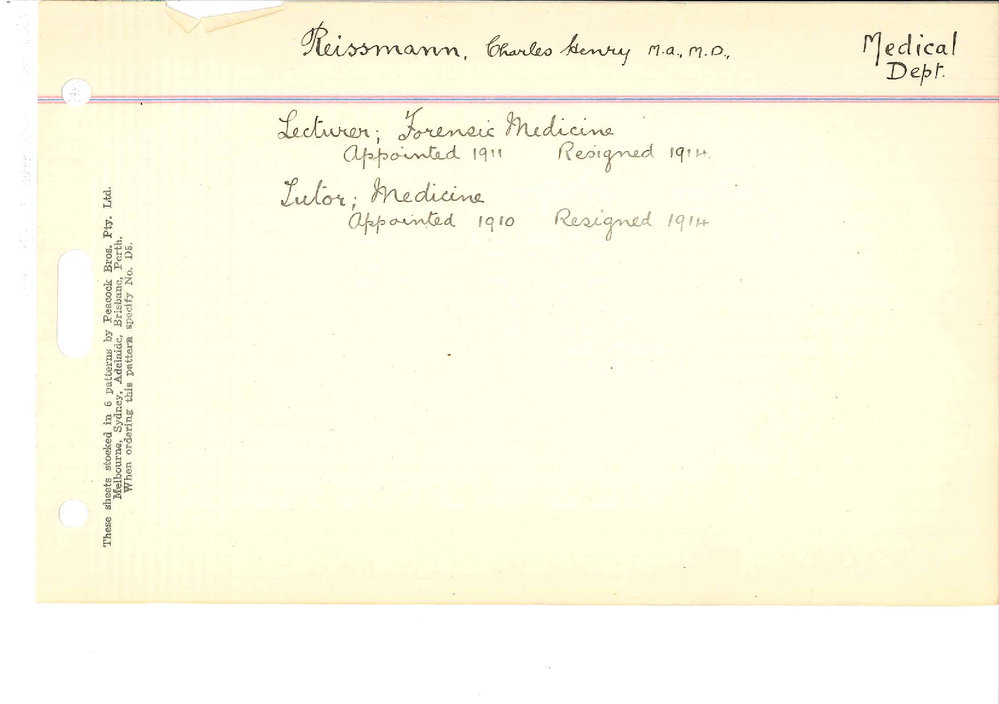 Reissmann, Charles Henry M.A., M.D.,
Medical
Dept.
Lecturer; Forensic Medicine
Appointed 1911 Resigned 1914.
Tutor; Medicine
Appointed 1910 Resigned 1914
These sheets stocked in 6 patterns by Peacock Bros. Pty. Ltd.
Melbourne, Sydney, Adelaide, Brisbane, Perth.
When ordering this pattern specify No. D5.